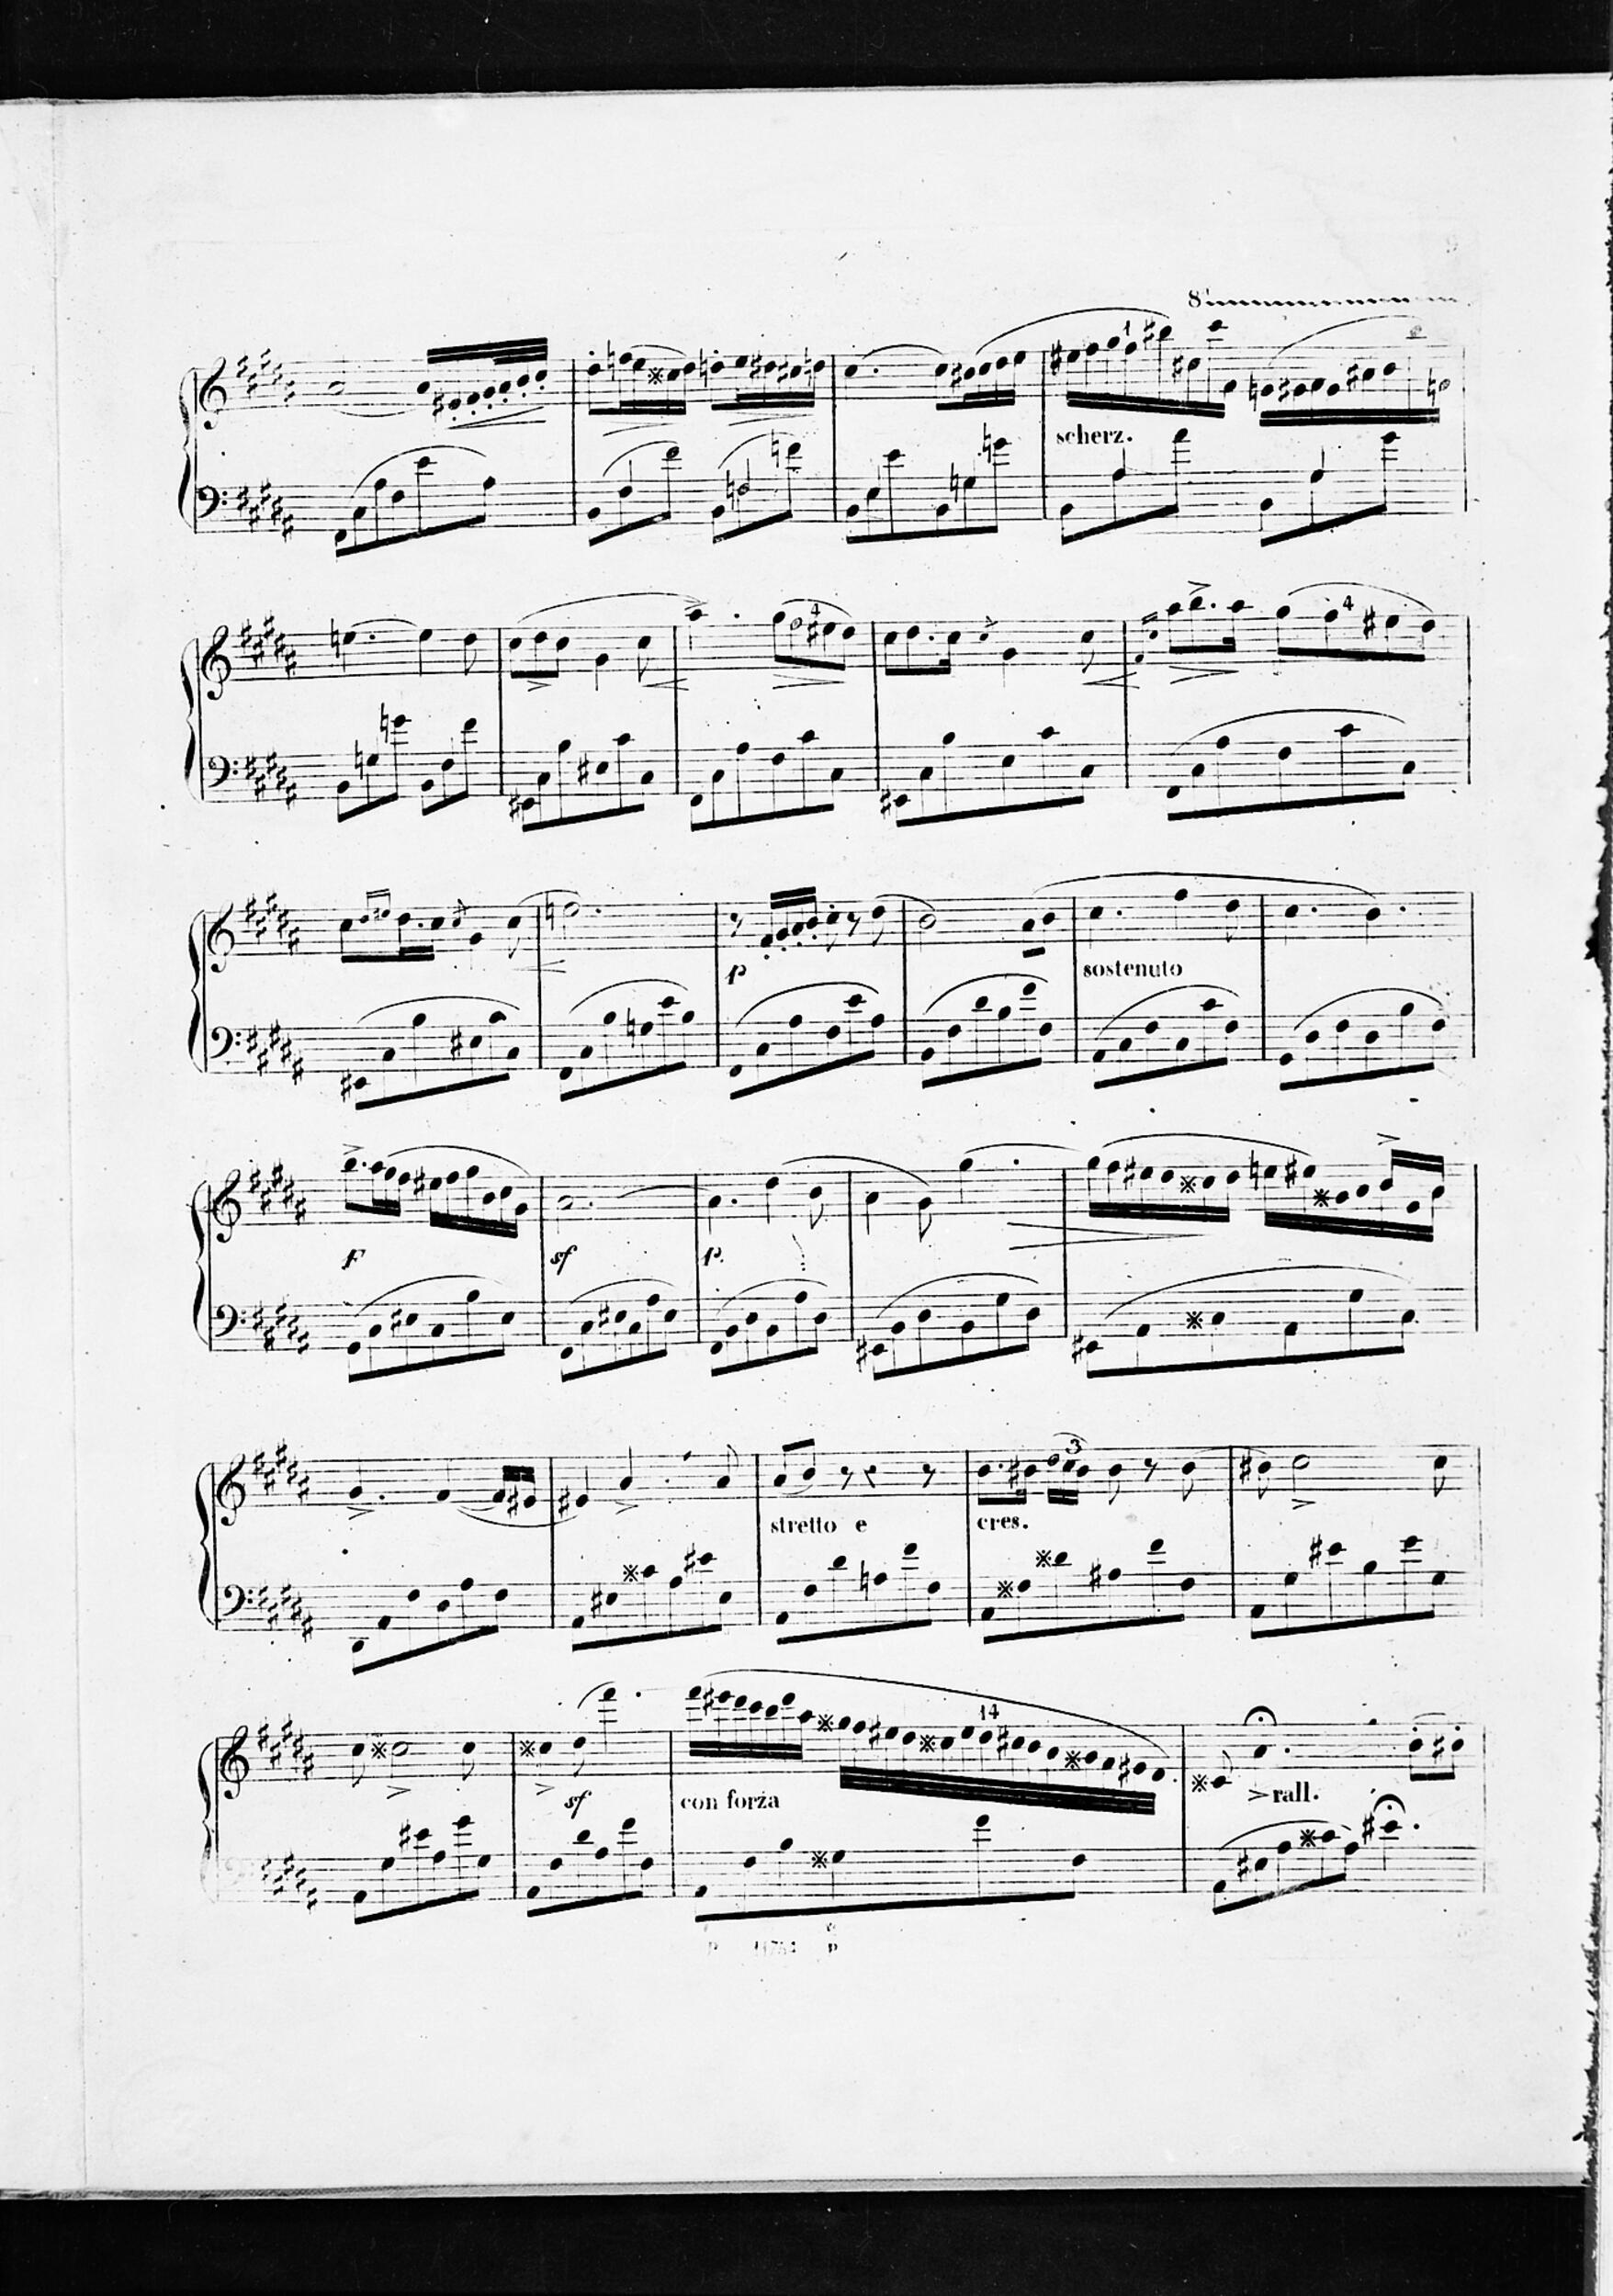 9
8
1
scherz.
4
4
p
sostenuto
F
sf
p.
3
stretto e
cres.
14
sf
con forza
rall.